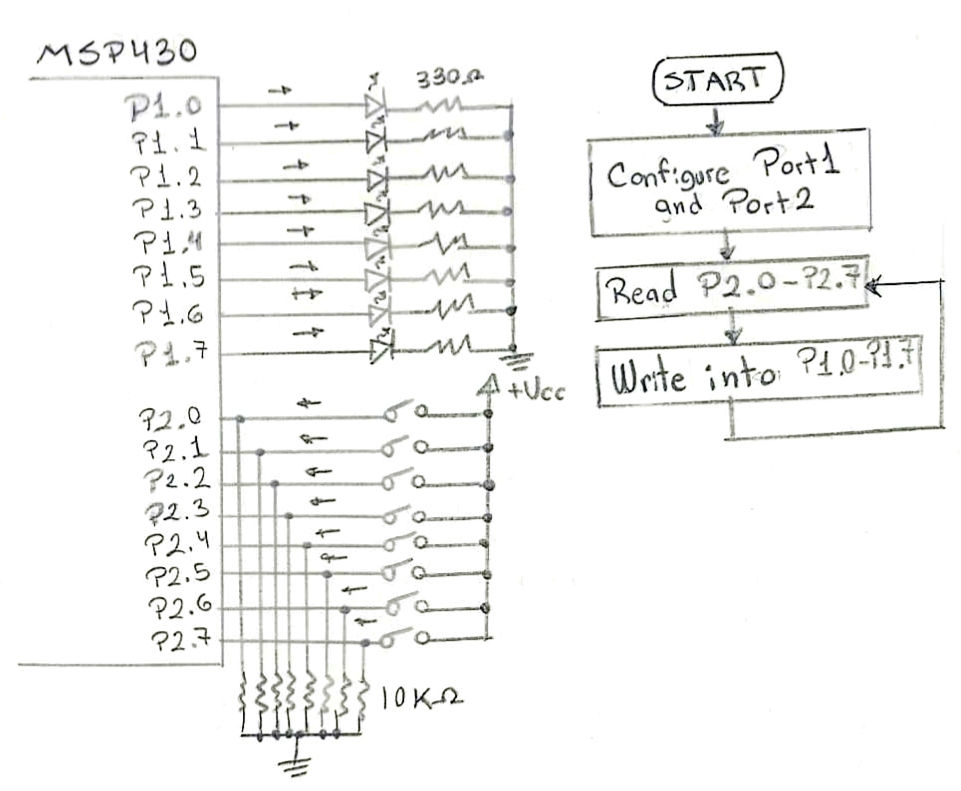 MSP430
330Ω
P1.0
P1.1
P1.2
P1.3
P1.4
P1.5
P1.6
P1.7
+Vcc
P2.0
P2.1
P2.2
P2.3
P2.4
P2.5
P2.6
P2.7
10KΩ
START
Configure Port1
and Port2
Read P2.0-P2.7
Write into P1.0-P1.7